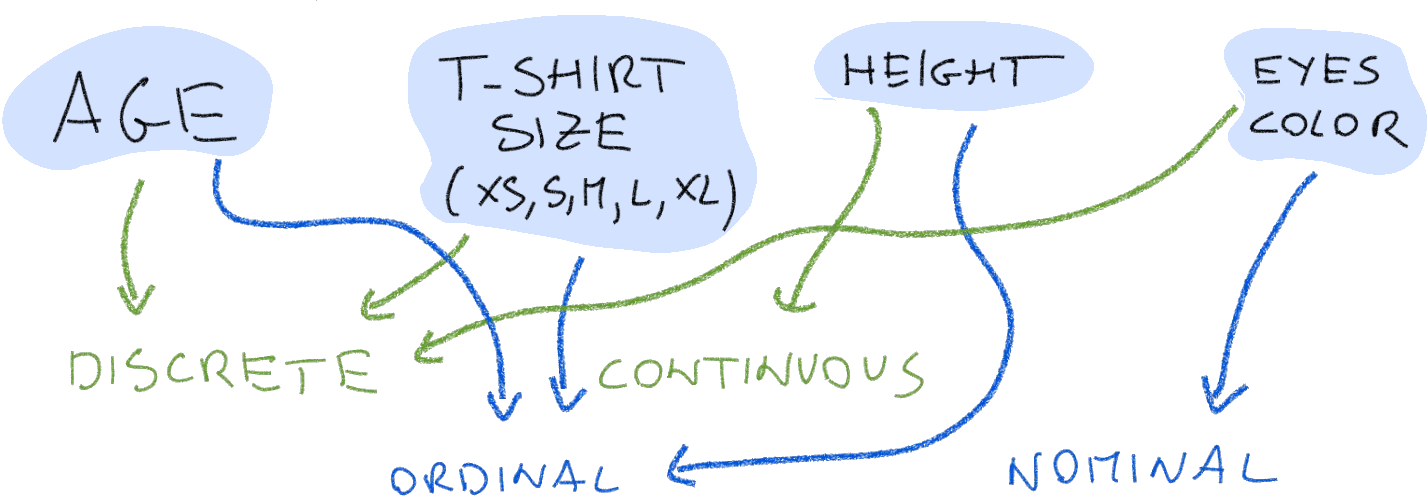 AGE
T-SHIRT
SIZE
(XS,S,M,L,XL)
HEIGHT
EYES
COLOR
DISCRETE
CONTINUOUS
ORDINAL
NOMINAL